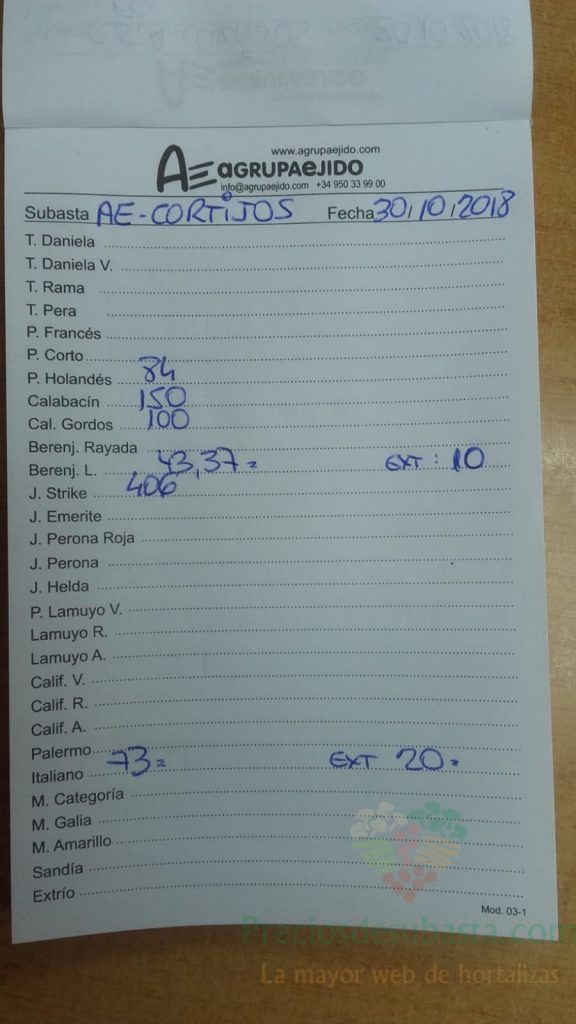 www.agrupaejido.com
AE AGRUPAEJIDO
info@agrupaejido.com +34 950 33 99 00
Subasta AE-CORTIJOS Fecha 30/10/2018
T. Daniela
T. Daniela V.
T. Rama
T. Pera
P. Francés
P. Corto
P. Holandés 84
Calabacín 150
Cal. Gordos 100
Berenj. Rayada
Berenj. L. 43,37= EXT: 10
J. Strike 406
J. Emerite
J. Perona Roja
J. Perona
J. Helda
P. Lamuyo V.
Lamuyo R.
Lamuyo A.
Calif. V.
Calif. R.
Calif. A.
Palermo
Italiano 73= EXT 20.
M. Categoría
M. Galia
M. Amarillo
Sandía
Extrío
Mod. 03-1
Preciosdesubasta.com
La mayor web de hortalizas